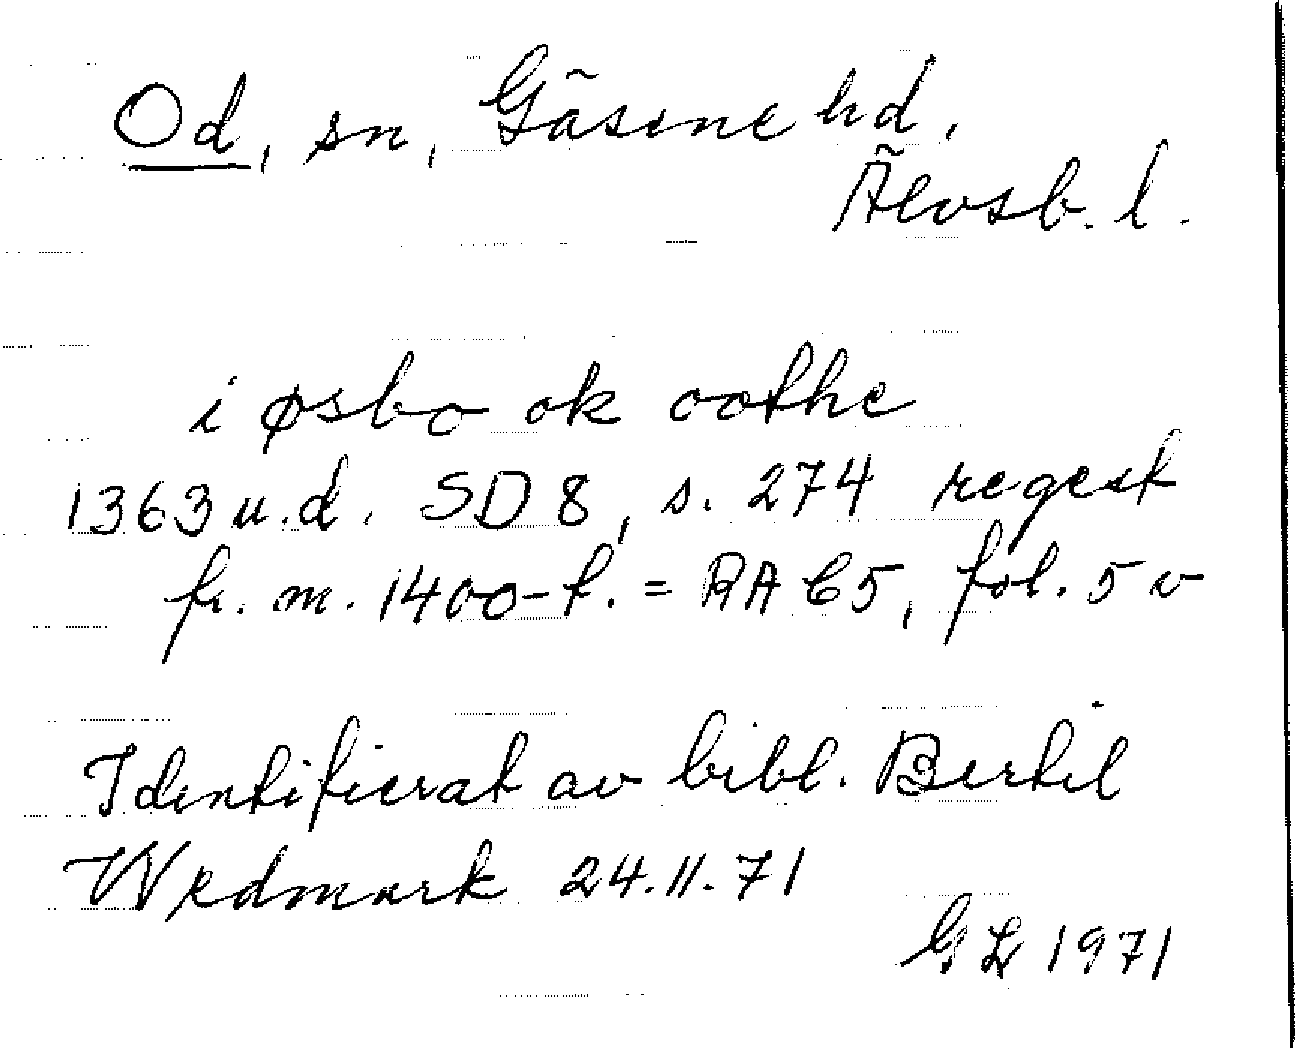 Od, sn, Gäsene hd,
Älvsb. l.
i øsbo ok oothe
1363 u.d. SD 8, s. 274 regest
fr. m. 1400-t. = RA C5, fol. 5 v
Identifierat av bibl. Bertil
Wedmark 24.11.71
GL 1971